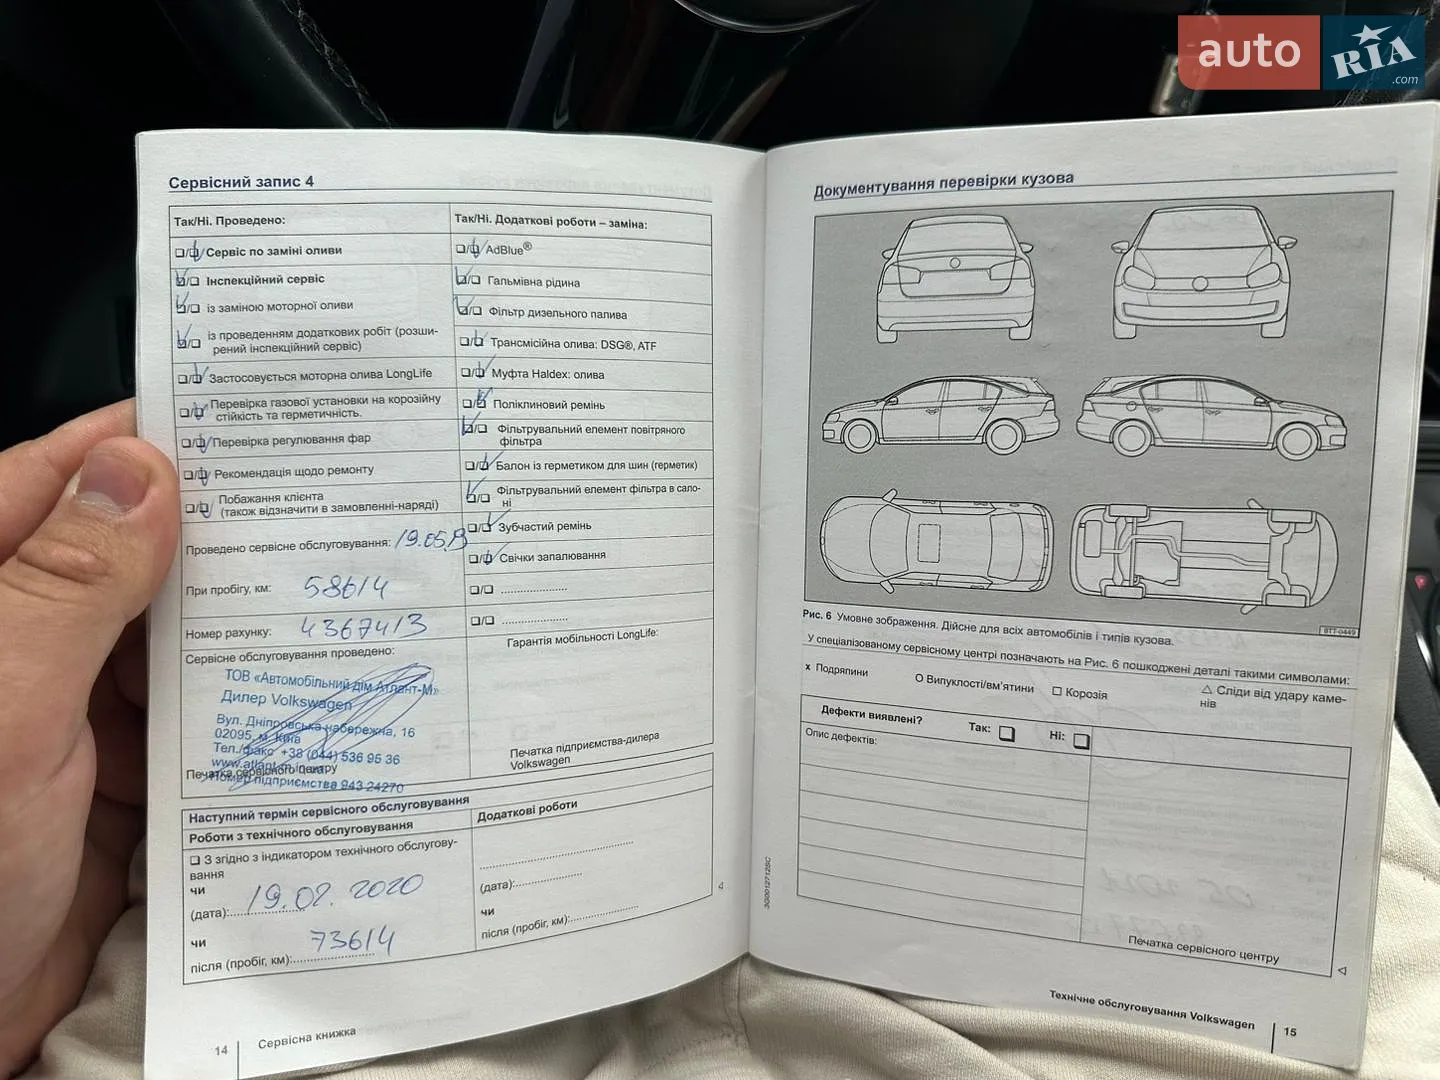 auto
RIA
.com
Сервісний запис 4
Так/Ні. Проведено:
Сервіс по заміні оливи
Інспекційний сервіс
із заміною моторної оливи
із проведенням додаткових робіт (розши-
рений інспекційний сервіс)
Застосовується моторна олива LongLife
Перевірка газової установки на корозійну
стійкість та герметичність.
Перевірка регулювання фар
Рекомендація щодо ремонту
Побажання клієнта
(також відзначити в замовленні-наряді)
Проведено сервісне обслуговування: 19.05.19
При пробігу, км: 58614
Номер рахунку: 4367413
Сервісне обслуговування проведено:
ТОВ «Автомобільний дім Атлант-М»
Дилер Volkswagen
Вул. Дніпровська набережна, 16
02095, м. Київ
Тел./факс +38 (044) 536 95 36
Печатка сервісного центру
Номер підприємства 943 24270
Так/Ні. Додаткові роботи – заміна:
AdBlue®
Гальмівна рідина
Фільтр дизельного палива
Трансмісійна олива: DSG®, ATF
Муфта Haldex: олива
Поліклиновий ремінь
Фільтрувальний елемент повітряного
фільтра
Балон із герметиком для шин (герметик)
Фільтрувальний елемент фільтра в сало-
ні
Зубчастий ремінь
Свічки запалювання
Гарантія мобільності LongLife:
Печатка підприємства-дилера
Volkswagen
Наступний термін сервісного обслуговування
Роботи з технічного обслуговування
З згідно з індикатором технічного обслугову-
вання
чи
(дата): 19.02.2020
чи
після (пробіг, км): 73614
Додаткові роботи
(дата):
чи
після (пробіг, км):
4
14 Сервісна книжка
Документування перевірки кузова
BTT-0449
Рис. 6 Умовне зображення. Дійсне для всіх автомобілів і типів кузова.
У спеціалізованому сервісному центрі позначають на Рис. 6 пошкоджені деталі такими символами:
x Подряпини
О Випуклості/вм'ятини
Корозія
△ Сліди від удару каме-
нів
Дефекти виявлені? Так: Ні:
Опис дефектів:
Печатка сервісного центру
3G0012712SC
Технічне обслуговування Volkswagen 15